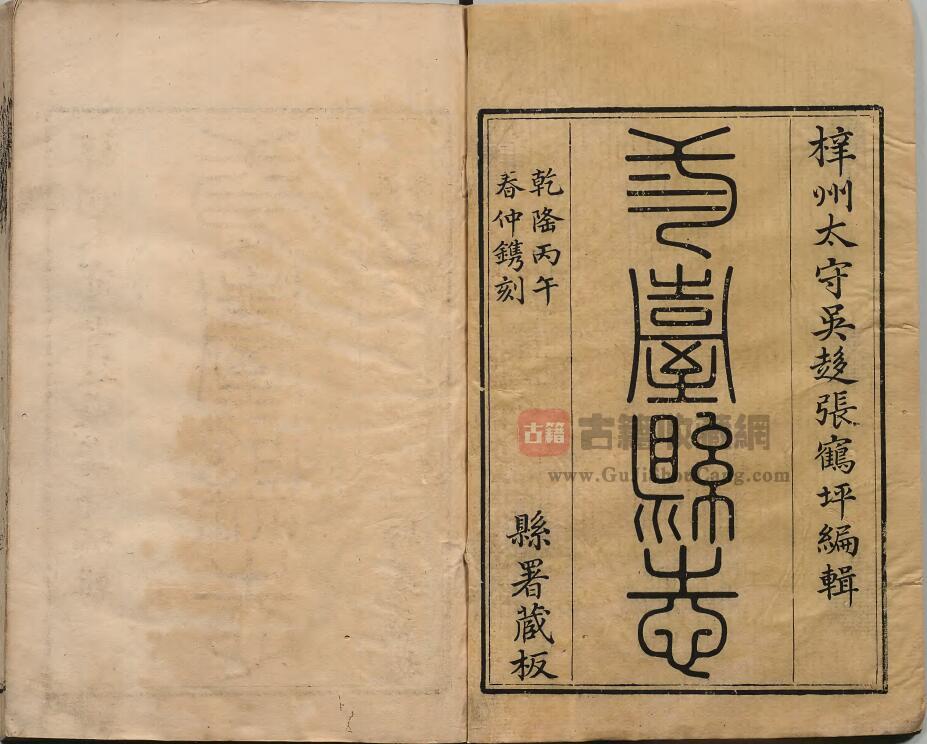 梓州太守吳趍張鶴坪編輯
三臺縣志
乾隆丙午
春仲鐫刻
縣署藏板
古籍
古籍收藏網
www.GuJiShouCang.com